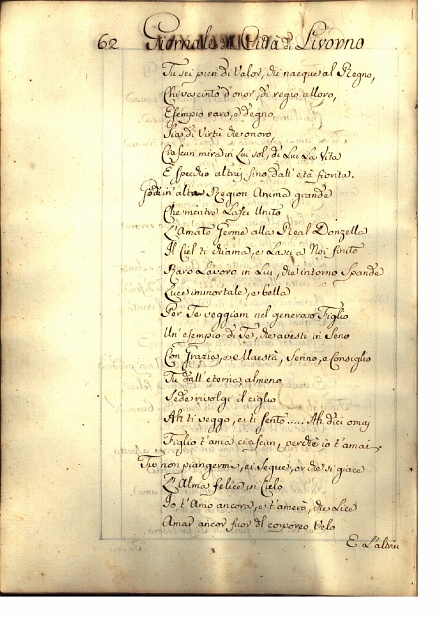 62 Giornale Città di Livorno
Tu sei pien di Valor, che nacque al Regno,
Chi va cinto d'onor, di regio alloro,
Esempio raro, e degno
Sia di Virtù decoro
Ciascun mira in Lui sol, di Lui La Vita
E specchio altrui sino dall' età fiorita.
Godi in' alta Region Anima grande
Che mentre Lasci Unito
L'Amato Germe alla Real Donzella
Il Ciel ti chiama, e Lasci a Noi finito
Raro Lavoro in Lui, che intorno Spande
Luce immortale, e bella
Per Te veggiam nel generoso Figlio
Un' esempio di Te, che avesti in Seno
Con Grazia, e Maestà, Senno, e Consiglio
Tu dall' eterna almeno
Sede rivolgi il ciglio
Ah ti veggo, e ti sento..... Ah dici omai
Figlio t'ama ciascun, perchè io t'amai
Tu non piangerme, ei segue, or che si giace
L'Alma felice in Cielo
Io t'Amo ancora, e t'amerò, che Lice
Amar ancor fuor del corporeo Velo
E L'altrui